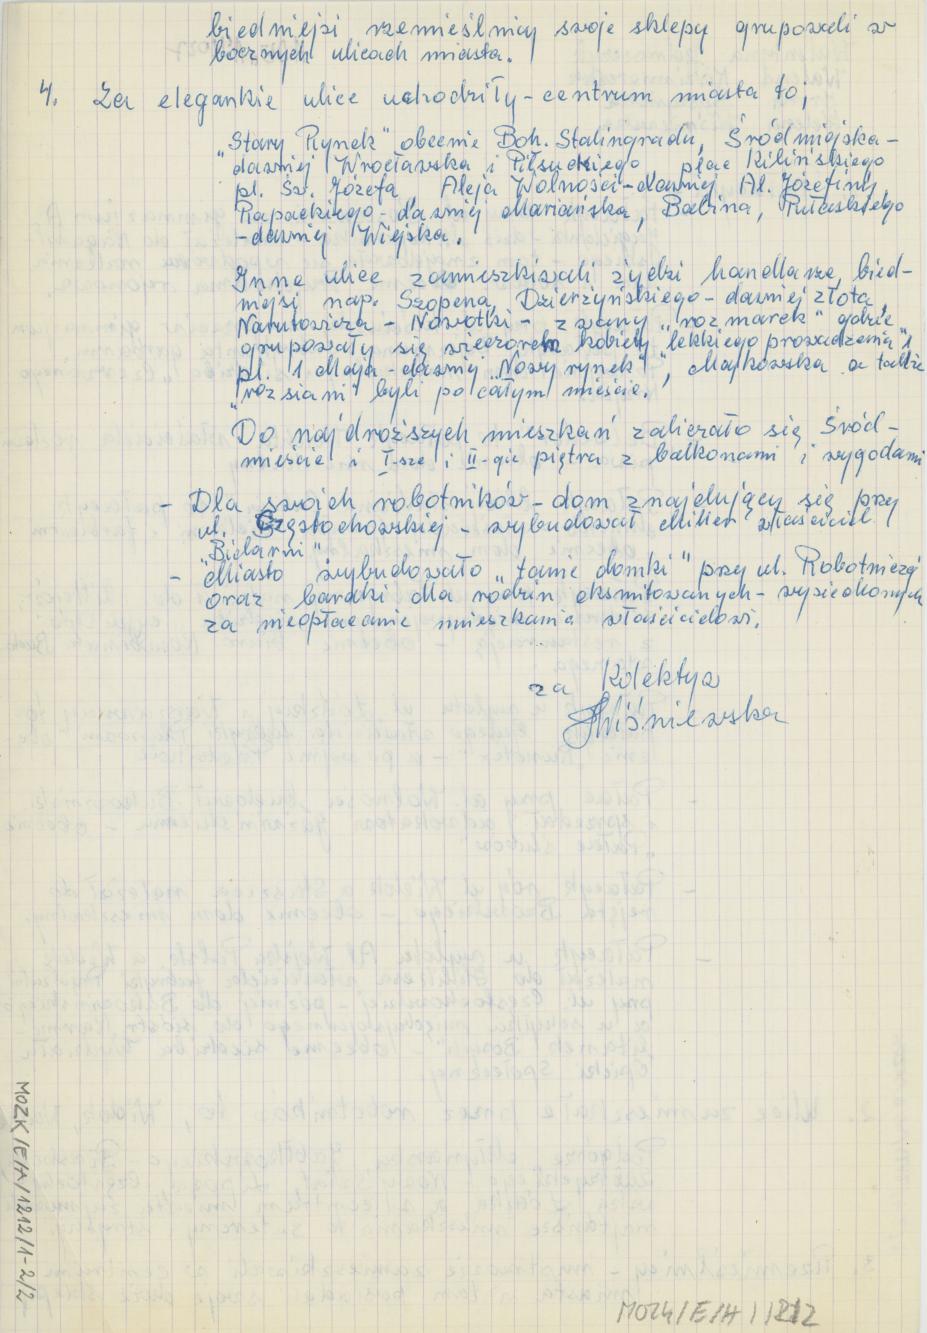 biedniejsi rzemieślnicy swoje sklepy grupowali w
bocznych ulicach miasta.
4. Za eleganckie ulice uchodziły - centrum miasta to;
"Stary Rynek" obecnie Boh. Stalingradu, Śródmiejska -
dawniej Wrocławska i Piłsudskiego, plac Kilińskiego
pl. Św. Józefa, Aleja Wolności - dawniej Al. Józefiny,
Rapackiego - dawniej Mariańska, Babina, Pułaskiego
- dawniej Wiejska.
Inne ulice zamieszkiwali żydzi handlarze, bied-
niejsi nap. Szopena, Dzierżyńskiego - dawniej złota,
Narutowicza - Nowotki - zwany "rozmarek" gdzie
grupowały się wieczorem kobiety "lekkiego prowadzenia" i
pl. 1 Maja - dawniej "Nowy rynek", Majkowska a także
"rozsiani" byli po całym mieście.
Do najdroższych mieszkań zaliczało się Śród-
mieście i I-sze i II-gie piętra z balkonami i wygodami
- Dla swoich robotników - dom znajdujący się przy
ul. Częstochowskiej - wybudował Miller właściciel
"Bielarni"
- Miasto wybudowało "tanie domki" przy ul. Robotniczej
oraz baraki dla rodzin eksmitowanych - wysiedlonych
za nieopłacanie mieszkania właścicielowi.
za Kolektyw
Wiśniewska
MOZK/E/A/1212/1-2/2
MOZK/E/A/1212